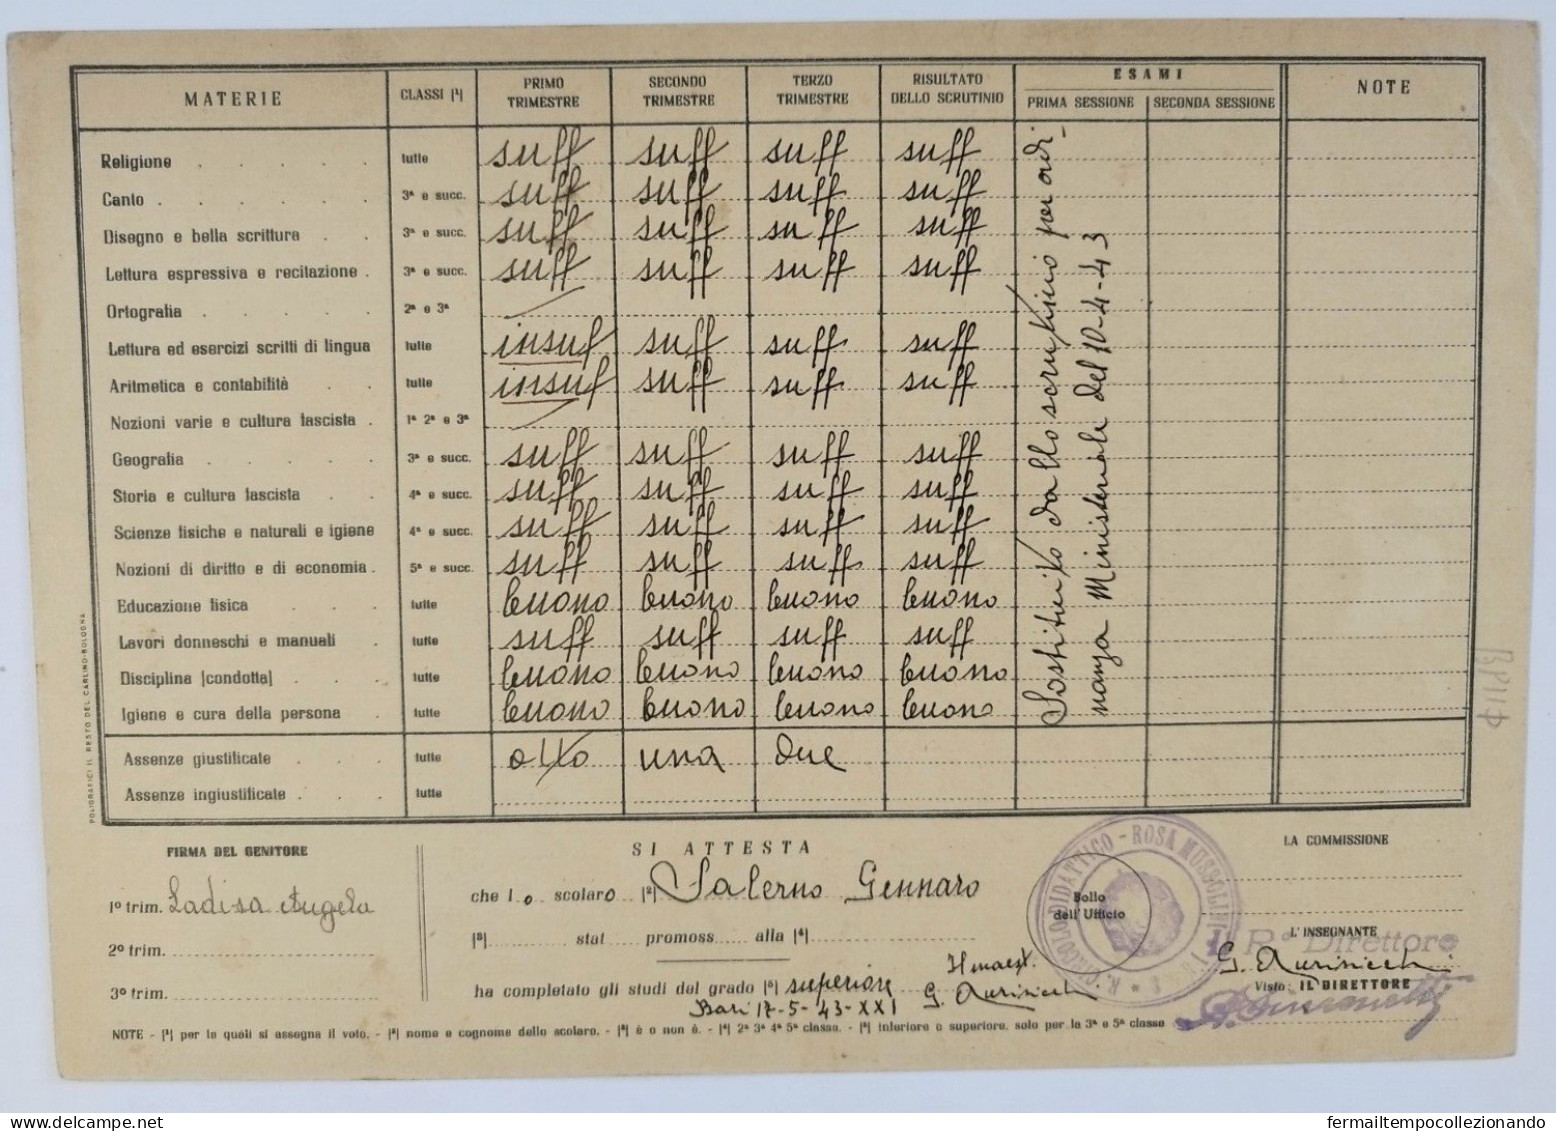 MATERIE CLASSI [¹] PRIMO TRIMESTRE SECONDO TRIMESTRE TERZO TRIMESTRE RISULTATO DELLO SCRUTINIO ESAMI PRIMA SESSIONE SECONDA SESSIONE NOTE
Religione tutte suff suff suff suff
Canto 3ª e succ. suff suff suff suff
Disegno e bella scrittura 3ª e succ. suff suff suff suff
Lettura espressiva e recitazione 3ª e succ. suff suff suff suff
Ortografia 2ª e 3ª
Lettura ed esercizi scritti di lingua tutte insuf suff suff suff
Aritmetica e contabilità tutte insuf suff suff suff
Nozioni varie e cultura fascista 1ª 2ª e 3ª
Geografia 3ª e succ. suff suff suff suff
Storia e cultura fascista 4ª e succ. suff suff suff suff
Scienze fisiche e naturali e igiene 4ª e succ. suff suff suff suff
Nozioni di diritto e di economia 5ª e succ. suff suff suff suff
Educazione fisica tutte buono buono buono buono
Lavori donneschi e manuali tutte suff suff suff suff
Disciplina [condotta] tutte buono buono buono buono
Igiene e cura della persona tutte buono buono buono buono
Assenze giustificate tutte otto una due
Assenze ingiustificate tutte
Sostituito dallo scrutinio per ordi-
nanza Ministeriale del 10-4-43
POLIGRAFICI IL RESTO DEL CARLINO-BOLOGNA
FIRMA DEL GENITORE
1º trim. Ladisa Angela
2º trim.
3º trim.
SI ATTESTA
che lo scolaro [²] Salerno Gennaro
[³] stat promoss alla [⁴]
ha completato gli studi del grado [⁵] superiore
Bari 17-5-43-XXI
Il maest.
G. Aurisicchi
Bollo
dell'Ufficio
CIRCOLO DIDATTICO - ROSA MUSSOLINI
LA COMMISSIONE
L'INSEGNANTE
Il Rº Direttore
G. Aurisicchi
Visto: IL DIRETTORE
NOTE - [¹] per le quali si assegna il voto. - [²] nome e cognome dello scolaro. - [³] è o non è. - [⁴] 2ª 3ª 4ª 5ª classe. - [⁵] inferiore o superiore, solo per la 3ª e 5ª classe
fermailtempocollezionando